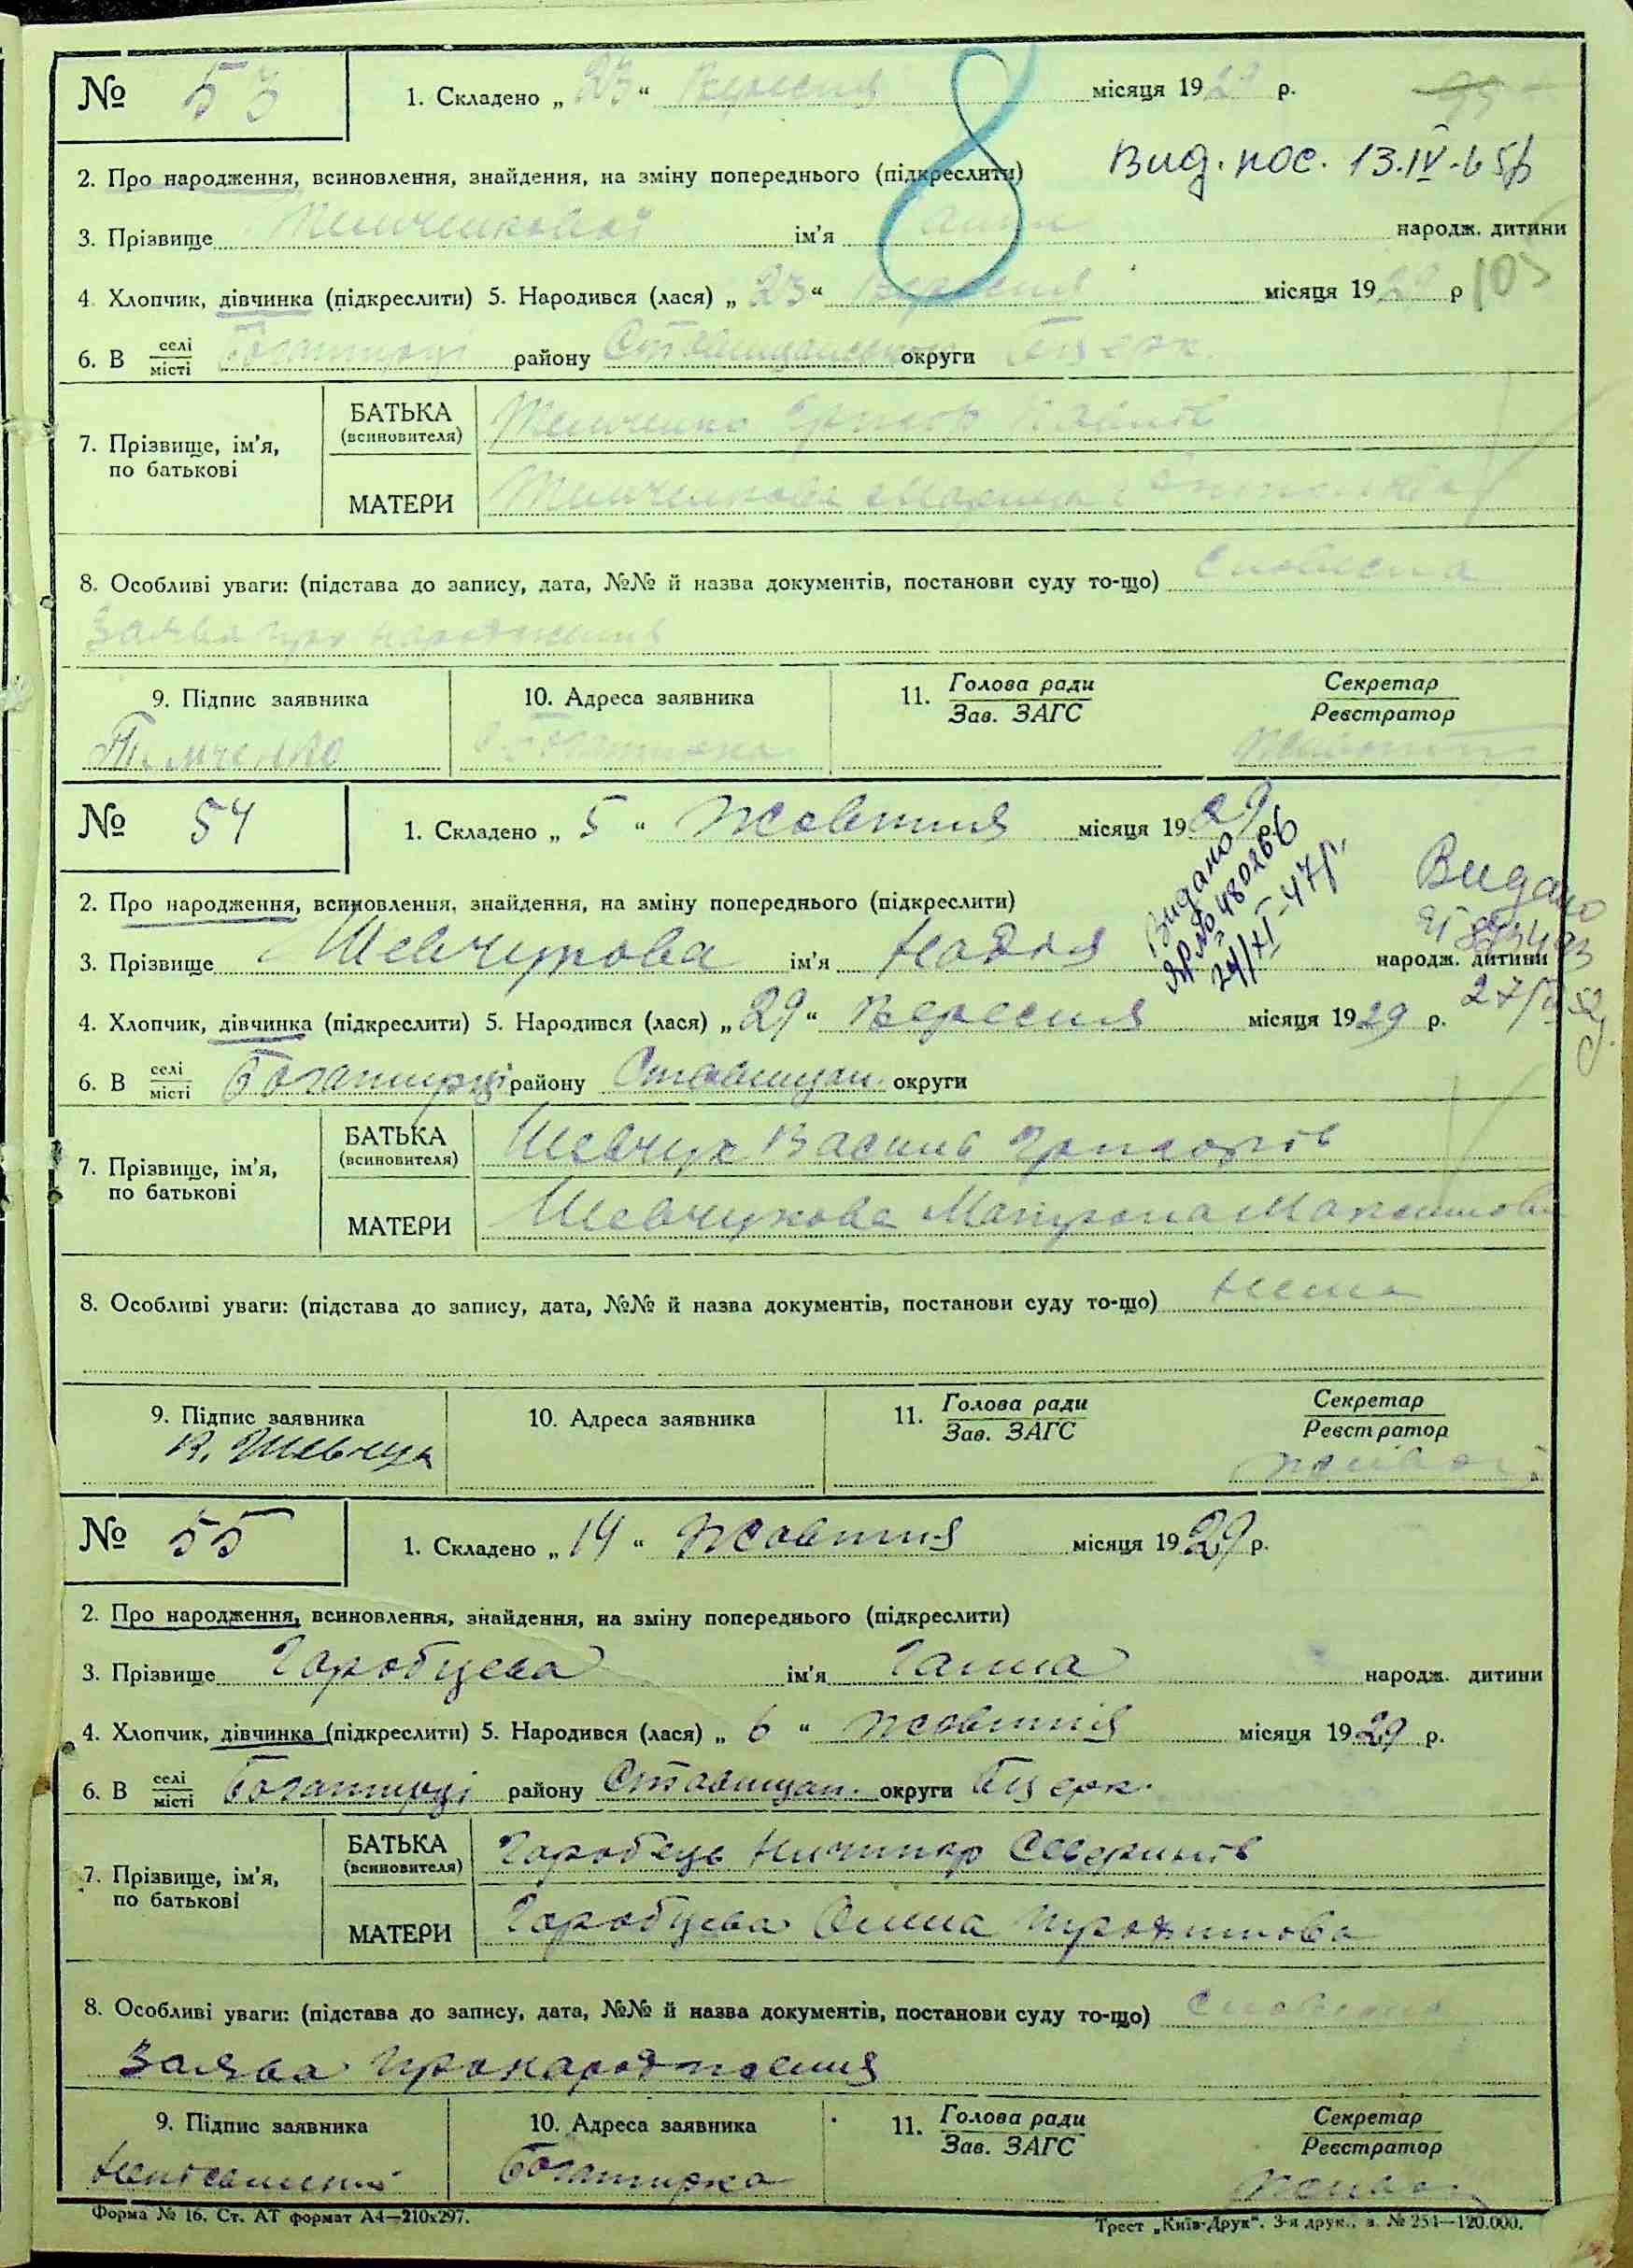 № 53
1. Складено „ 23 “ Вересня місяця 1929 р.
8
Вид. пос. 13.IV.65р
2. Про народження, всиновлення, знайдення, на зміну попереднього (підкреслити)
3. Прізвище ім'я народж. дитини
4. Хлопчик, дівчинка (підкреслити) 5. Народився (лася) „ 23 “ Вересня місяця 1929 р
6. В селі/місті Богатирці району Ставищанського округи БЦерк.
7. Прізвище, ім'я, по батькові
БАТЬКА (всиновителя) Григор
МАТЕРИ
8. Особливі уваги: (підстава до запису, дата, №№ й назва документів, постанови суду то-що) Словесна
Заява про народження
9. Підпис заявника 10. Адреса заявника 11. Голова ради/Зав. ЗАГС Секретар/Реєстратор
Тимченко Богатирка
№ 54
1. Складено „ 5 “ Жовтня місяця 1929 р.
Видано
№ 480266
24/XI-47р.
Видано
2. Про народження, всиновлення, знайдення, на зміну попереднього (підкреслити)
3. Прізвище Шевчукова ім'я Надія народж. дитини
4. Хлопчик, дівчинка (підкреслити) 5. Народився (лася) „ 29 “ Вересня місяця 1929 р.
6. В селі/місті Богатирці району Ставищан. округи
7. Прізвище, ім'я, по батькові
БАТЬКА (всиновителя) Шевчук Василь Григорів
МАТЕРИ Шевчукова Матрона Максимова
8. Особливі уваги: (підстава до запису, дата, №№ й назва документів, постанови суду то-що) Нема
9. Підпис заявника 10. Адреса заявника 11. Голова ради/Зав. ЗАГС Секретар/Реєстратор
В. Шевчук
№ 55
1. Складено „ 14 “ Жовтня місяця 1929 р.
2. Про народження, всиновлення, знайдення, на зміну попереднього (підкреслити)
3. Прізвище Горобцева ім'я Ганна народж. дитини
4. Хлопчик, дівчинка (підкреслити) 5. Народився (лася) „ 6 “ Жовтня місяця 1929 р.
6. В селі/місті Богатирці району Ставищан. округи БЦерк.
7. Прізвище, ім'я, по батькові
БАТЬКА (всиновителя) Горобець Ничипор Северинів
МАТЕРИ Горобцева
8. Особливі уваги: (підстава до запису, дата, №№ й назва документів, постанови суду то-що) Словесна
Заява про народження
9. Підпис заявника 10. Адреса заявника 11. Голова ради/Зав. ЗАГС Секретар/Реєстратор
Неписьменний Богатирка
Форма № 16. Ст. АТ формат А4—210х297. Трест „Київ-Друк“. 3-я друк., з. № 251—120.000.